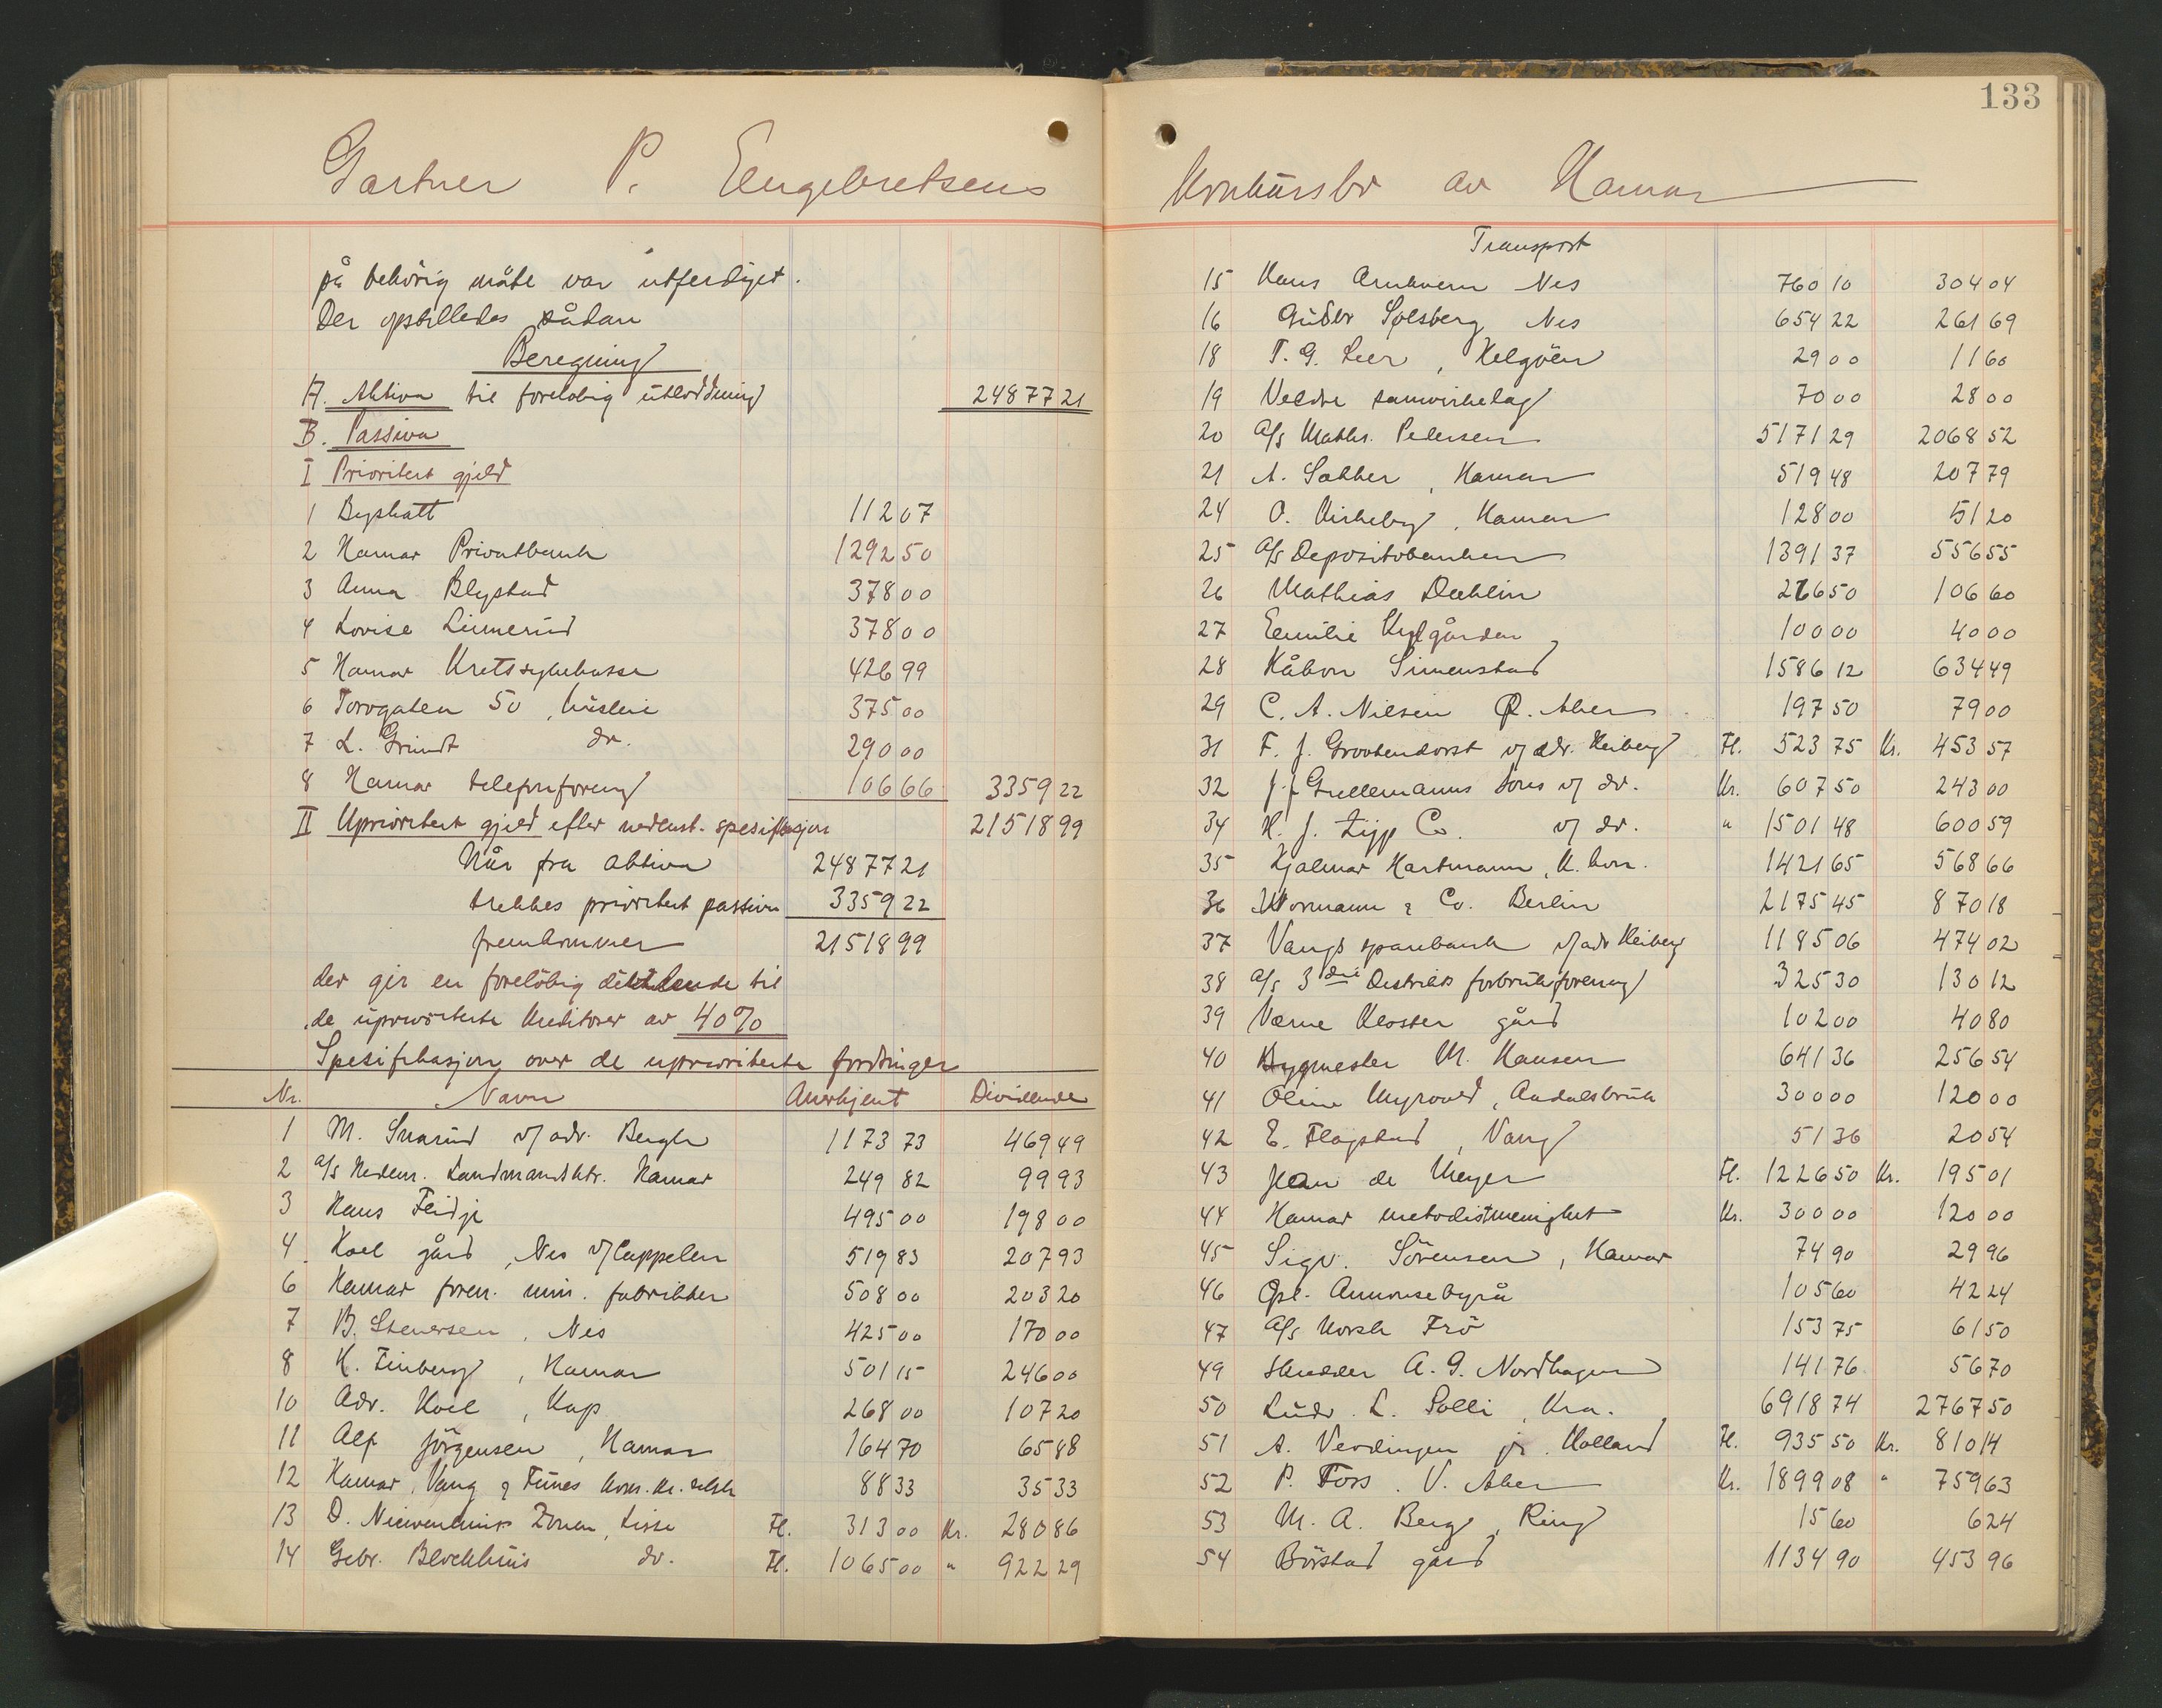 133
Gartner P. Engebretsens
på behörig måte var utferdiget.
Der opstilledes sådan
Beregning
A. Aktiva til forelöbig utlodning 24877 21
B. Passiva
I Prioritert gjeld
1 Byskatt 112 07
2 Hamar Privatbank 1292 50
3 Anna Blystad 378 00
4 Lovise Linnerud 378 00
5 Hamar Kretssykekasse 426 99
6 Torvgaten 50, husleie 375 00
7 L. Grundt do. 290 00
8 Hamar telefonforening 106 66 3359 22
II Uprioritert gjeld efter nedenst. spesifikasjon 21518 99
Når fra aktiva 24877 21
trekkes prioritert passiva 3359 22
fremkommer 21518 99
der gir en forelöbig dividende til
de uprioriterte kreditorer av 40%
Spesifikasjon over de uprioriterte fordringer
Nr. Navn Anerkjent Dividende
1 M. Snarud v/ adv. Bergh 1173 73 469 49
2 A/S Hedem. Landmandsktr. Hamar 249 82 99 93
3 Hans Feidje 495 00 198 00
4 Hoel gård, Nes v/ Cappelen 519 83 207 93
6 Hamar foren. min. fabrikker 508 00 203 20
7 B. Stenersen, Nes 425 00 170 00
8 K. Finberg, Hamar 501 15 246 00
10 Adv. Hoel, Kap 268 00 107 20
11 Alf Jörgensen, Hamar 164 70 65 88
12 Hamar, Vang & Furnes kom. kr. selsk 88 33 35 33
13 D. Nieuwenhuis Zonen, Lisse Fl. 313 00 Kr. 280 86
14 Gebr. Blockhuis do. Fl. 1065 00 " 922 29
Konkursbo av Hamar
Transport
15 Hans Arnkvern Nes 760 10 304 04
16 Gudbr Solsberg Nes 654 22 261 69
18 T. G. Lier, Helgöen 29 00 11 60
19 Veldre samvirkelag 70 00 28 00
20 A/S Maths. Pedersen 5171 29 2068 52
21 A. Sakker, Hamar 519 48 207 79
24 O. Kirkeby, Hamar 128 00 51 20
25 A/S Depositobanken 1391 37 556 55
26 Mathias Dæhlin 266 50 106 60
27 Emilie Nygården 100 00 40 00
28 Håkon Simenstad 1586 12 634 49
29 C. A. Nilsen Ø. Aker 197 50 79 00
31 F. J. Grootendorst v/ adv. Heiberg Fl. 523 75 Kr. 453 57
32 J. J. Grullemanns Sons v/ do. Kr. 607 50 243 00
34 H. J. Zijp Co. v/ do. " 1501 48 600 59
35 Hjalmar Hartmann, K.havn. 1421 65 568 66
36 Wormann & Co. Berlin 2175 45 870 18
37 Vangs sparebank v/ adv Heiberg 1185 06 474 02
38 A/S 3die Distrikts forbruksforening 325 30 130 12
39 Værne Kloster gård 102 00 40 80
40 Bygmester M. Hansen 641 36 256 54
41 Oline Myrvold, Aadalsbruk 300 00 120 00
42 E. Flagstad, Vang 51 36 20 54
43 Jean de Meyer Fl. 1226 50 Kr. 195 01
44 Hamar metodistmenighet Kr. 300 00 120 00
45 Sigv. Sörensen, Hamar 74 90 29 96
46 Opl. Annonsebyrå 105 60 42 24
47 A/S Norsk Frö 153 75 61 50
49 Skredder A. G. Nordhagen 141 76 56 70
50 Ludv. L. Solli, Kra. 6918 74 2767 50
51 A. Verdingen jr. Holland Fl. 935 50 Kr. 810 14
52 P. Foss. V. Aker Kr. 1899 08 " 759 63
53 M. A. Berge, Ring 15 60 6 24
54 Börstad gård 1134 90 453 96